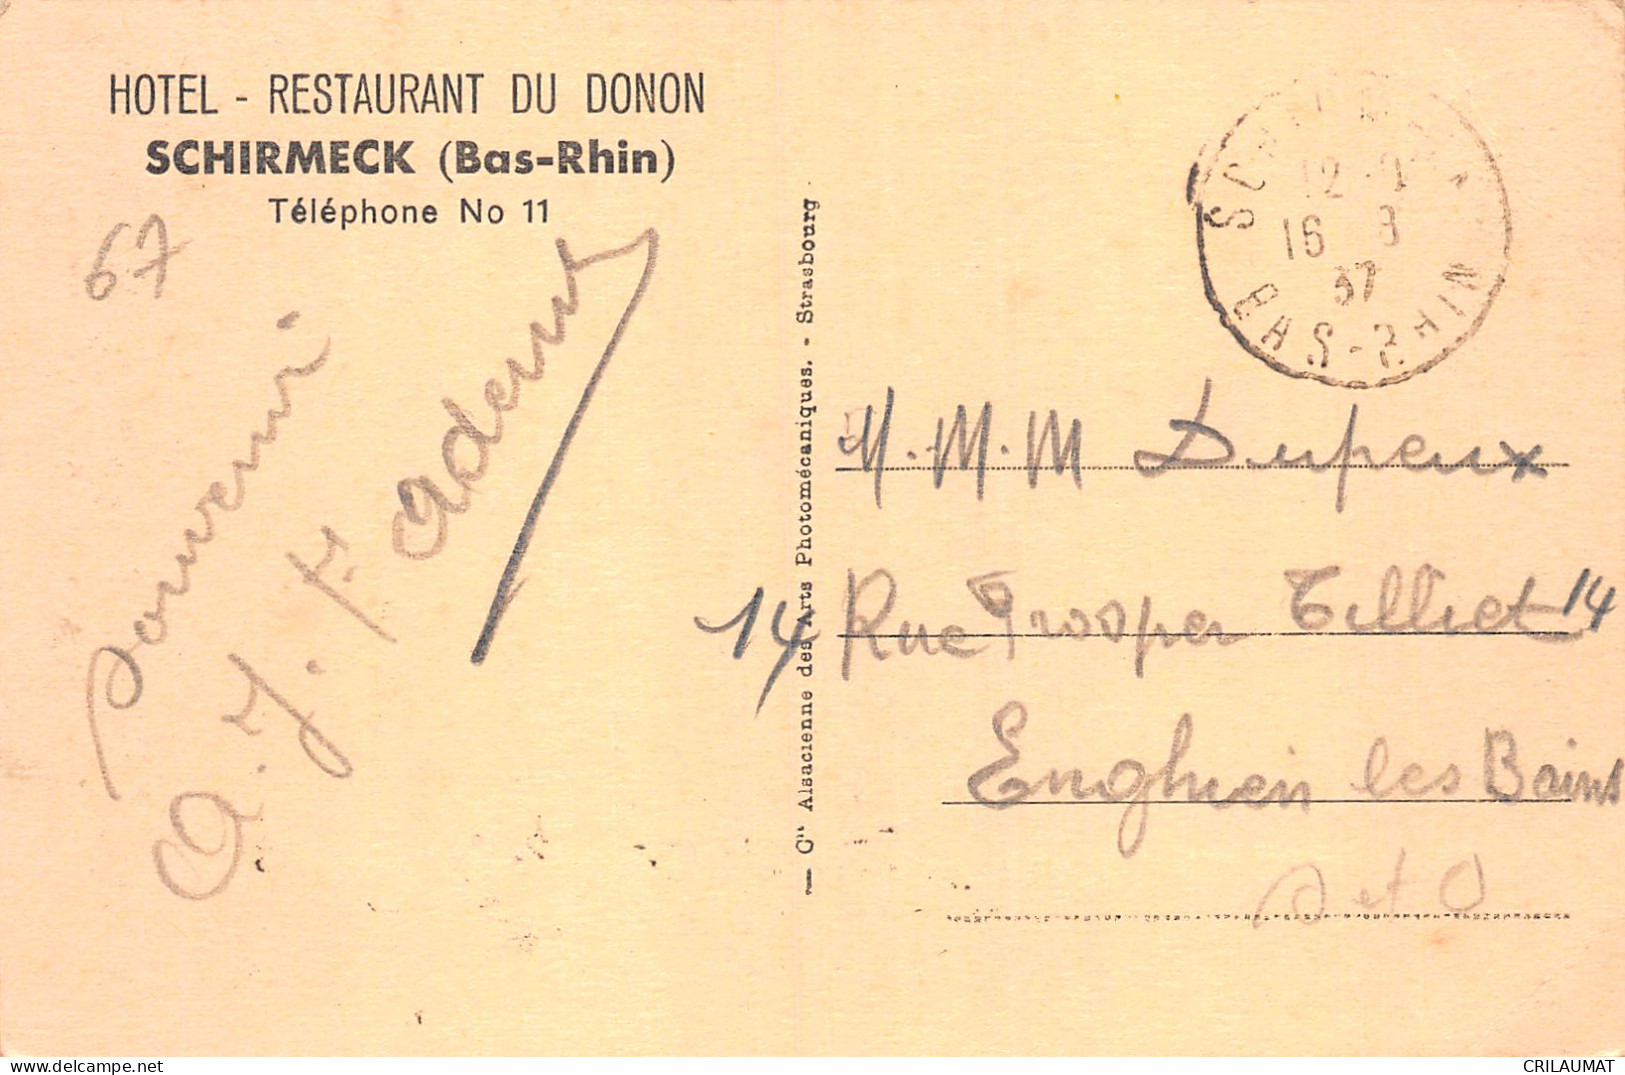 HOTEL - RESTAURANT DU DONON
SCHIRMECK (Bas-Rhin)
Téléphone No 11
67
Souvenir
A. J. F. Adem
— Cie Alsacienne des Arts Photomécaniques. - Strasbourg
SCHIRMECK
12 -
16 8
37
BAS-RHIN
M. M. M Dupeux
14 Rue Prosper Tilliet 14
Enghien les Bains
S et O
delcampe.net
CRILAUMAT